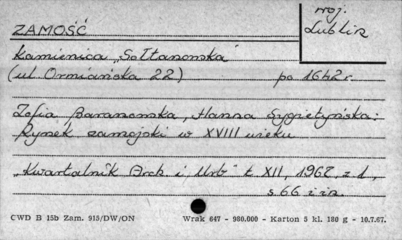 ZAMOŚĆ
woj. Lublin
Kamienica „Sołtanowska"
(ul Ormiańska 22) po 1642 r.
Zofia Baranowska, Hanna Sygietyńska:
Rynek zamojski w XVIII wieku
„Kwartalnik Arch. i Urb" t. XII, 1967, z 1,
s. 66 i in.
CWD B 15b Zam. 915/DW/ON Wrak 647 - 980.000 - Karton 5 kl. 180 g - 10.7.67.